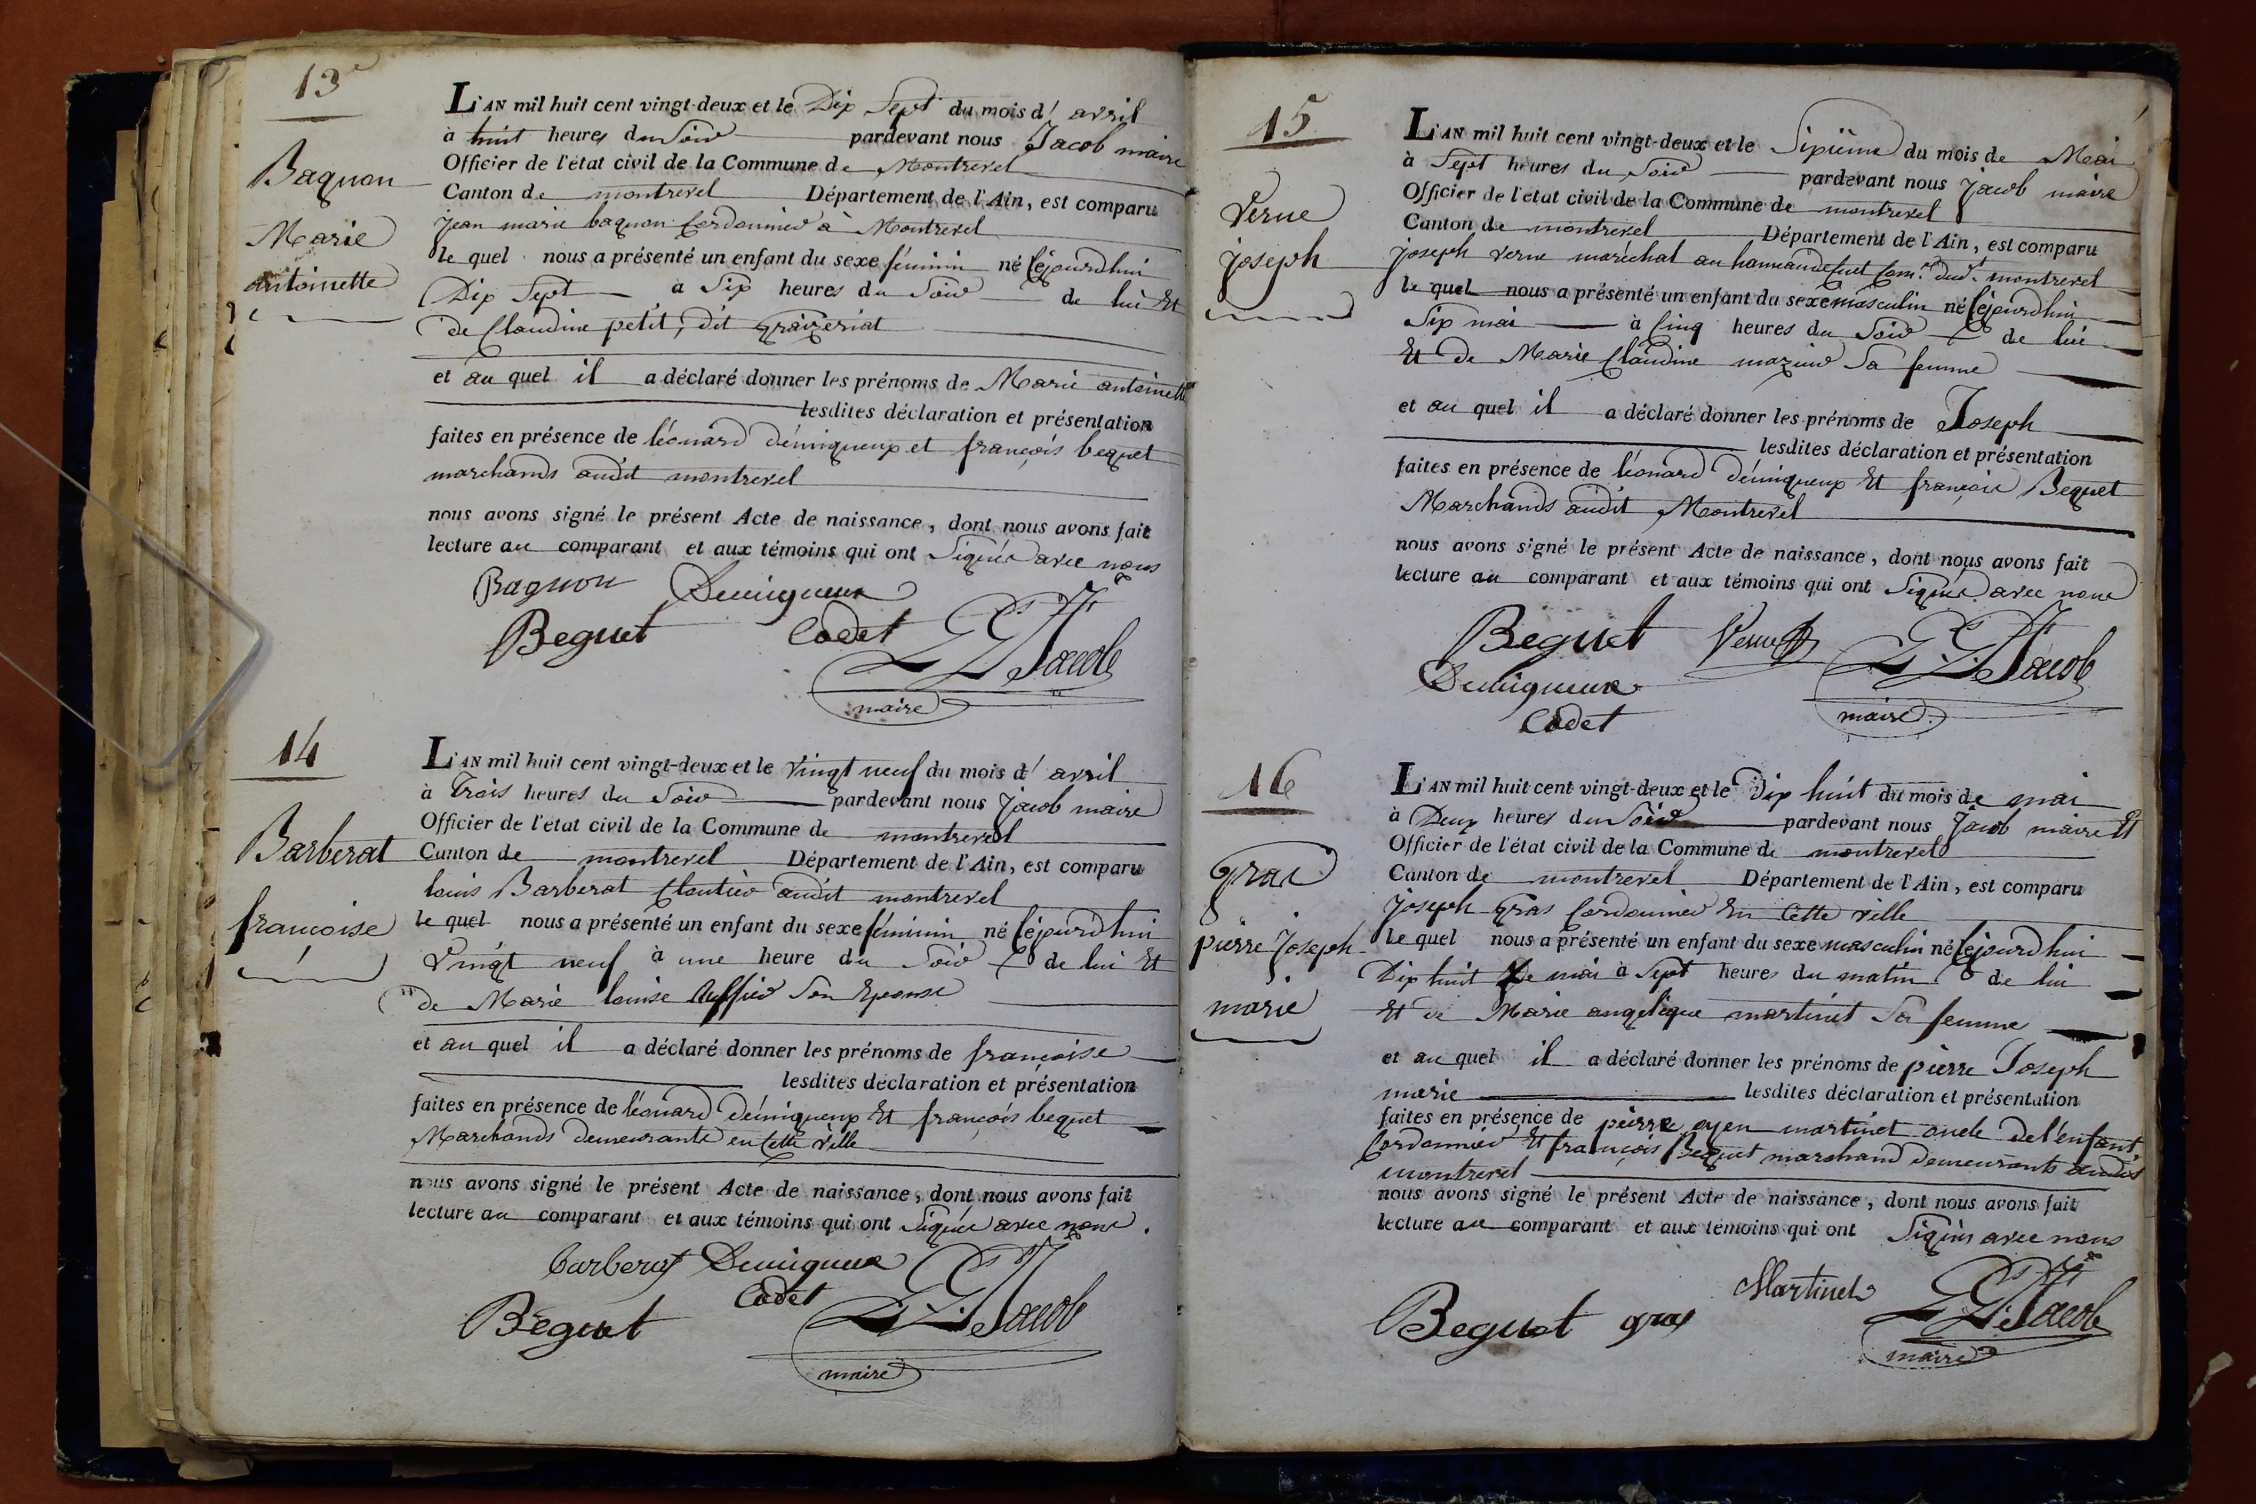 13e
Baquon
Marie
antoinette
L'AN mil huit cent vingt-deux et le Dix Sept du mois d' avril
à huit heures du Soir pardevant nous Jacob maire
Officier de l'état civil de la Commune de Montrevel
Canton de montrevel Département de l'Ain, est comparu
Jean marie baquon Cordonnier à Montrevel
le quel nous a présenté un enfant du sexe féminin né Cejourdhui
Dix Sept à Six heures du Soir de lui Et
de Claudine petit, dit
et au quel il a déclaré donner les prénoms de Marie antoinette
lesdites déclaration et présentation
faites en présence de léonard démiqueux et françois bequet
marchands audit montrevel
nous avons signé le présent Acte de naissance, dont nous avons fait
lecture au comparant et aux témoins qui ont Signés avec nous
Baquon Demiqueux
Beguet Cadet Jacob
maire
14
Barberat
françoise
L'AN mil huit cent vingt-deux et le Vingt neuf du mois d' avril
à Trois heures du Soir pardevant nous Jacob maire
Officier de l'état civil de la Commune de montrevel
Canton de montrevel Département de l'Ain, est comparu
louis Barberat Cloutier audit montrevel
le quel nous a présenté un enfant du sexe féminin né Cejourdhui
Vingt neuf à une heure du Soir de lui Et
de Marie louise Ruffier Son Epouse
et au quel il a déclaré donner les prénoms de françoise
lesdites déclaration et présentation
faites en présence de léonard démiqueux Et françois bequet
Marchands demeurants en Cette Ville
nous avons signé le présent Acte de naissance, dont nous avons fait
lecture au comparant et aux témoins qui ont Signés avec nous.
barberat Demiqueux
Cadet
Beguet Jacob
maire
15
Verne
joseph
L'AN mil huit cent vingt-deux et le Sixième du mois de Mai
à Sept heures du Soir pardevant nous Jacob maire
Officier de l'état civil de la Commune de montrevel
Canton de montrevel Département de l'Ain, est comparu
joseph Verne maréchal au hameau de Cuet Com.e dud.t montrevel
le quel nous a présenté un enfant du sexe masculin né Cejourdhui
Six mai à Cinq heures du Soir de lui
Et de Marie Claudine mazuir Sa femme
et au quel il a déclaré donner les prénoms de Joseph
lesdites déclaration et présentation
faites en présence de léonard démiqueux Et françois Bequet
Marchands audit Montrevel
nous avons signé le présent Acte de naissance, dont nous avons fait
lecture au comparant et aux témoins qui ont Signés avec nous
Beguet Verne Jacob
Demiqueux
Cadet maire
16
gras
pierre Joseph
marie
L'AN mil huit cent vingt-deux et le Dix huit du mois de mai
à Deux heures du Soir pardevant nous Jacob maire Et
Officier de l'état civil de la Commune de montrevel
Canton de montrevel Département de l'Ain, est comparu
Joseph Gras Cordonnier En Cette Ville
Le quel nous a présenté un enfant du sexe masculin né Cejourdhui
Dix huit de mai à Sept heures du matin de lui
Et de Marie angelique martinet Sa femme
et au quel il a déclaré donner les prénoms de pierre Joseph
marie lesdites déclaration et présentation
faites en présence de pierre martinet oncle de l'enfant,
Cordonnier Et françois Bequet marchand demeurants audit
montrevel
nous avons signé le présent Acte de naissance, dont nous avons fait
lecture au comparant et aux témoins qui ont Signés avec nous
Martinet
Beguet gras Jacob
maire